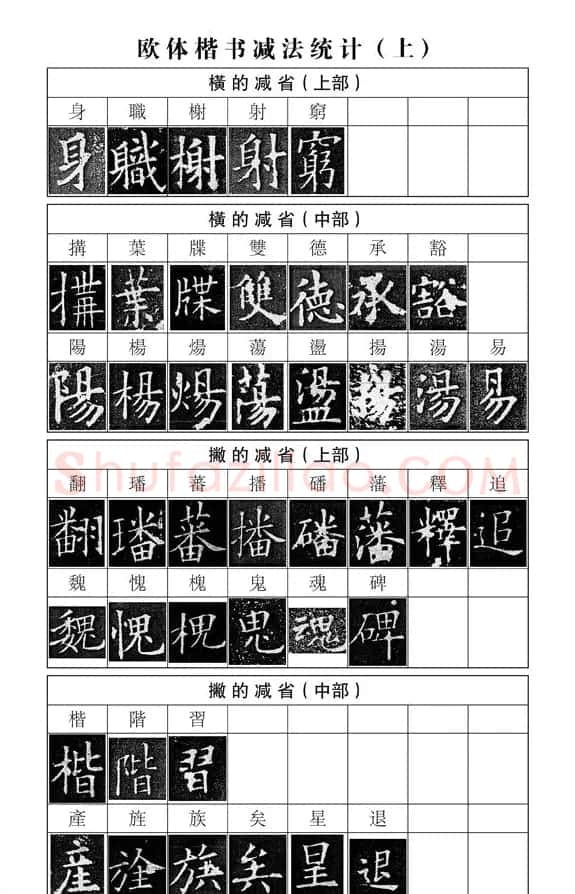 欧体楷书减法统计（上）
橫的减省（上部）
身 職 榭 射 窮
身 職 榭 射 窮
橫的减省（中部）
搆 葉 牒 雙 德 承 豁
搆 葉 牒 雙 德 承 豁
陽 楊 煬 蕩 盪 揚 湯 易
陽 楊 煬 蕩 盪 揚 湯 易
撇的减省（上部）
Shufaziliao.COM
翻 璠 蕃 播 磻 藩 釋 追
翻 璠 蕃 播 磻 藩 釋 追
魏 愧 槐 鬼 魂 碑
魏 愧 槐 鬼 魂 碑
撇的减省（中部）
楷 階 習
楷 階 習
產 旌 族 矣 星 退
產 旌 族 矣 星 退